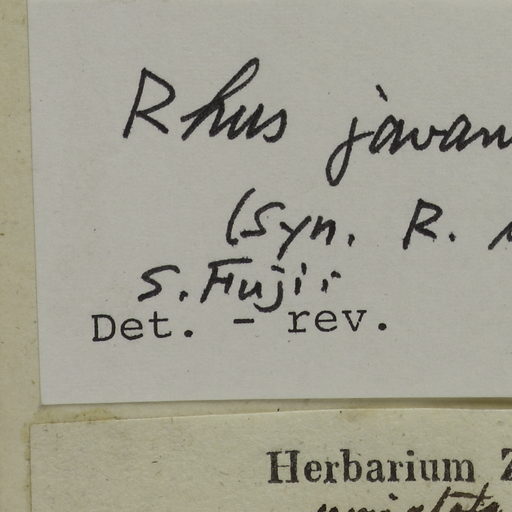 Rhus javan
(Syn. R.
S. Fujii
Det. - rev.
Herbarium Z